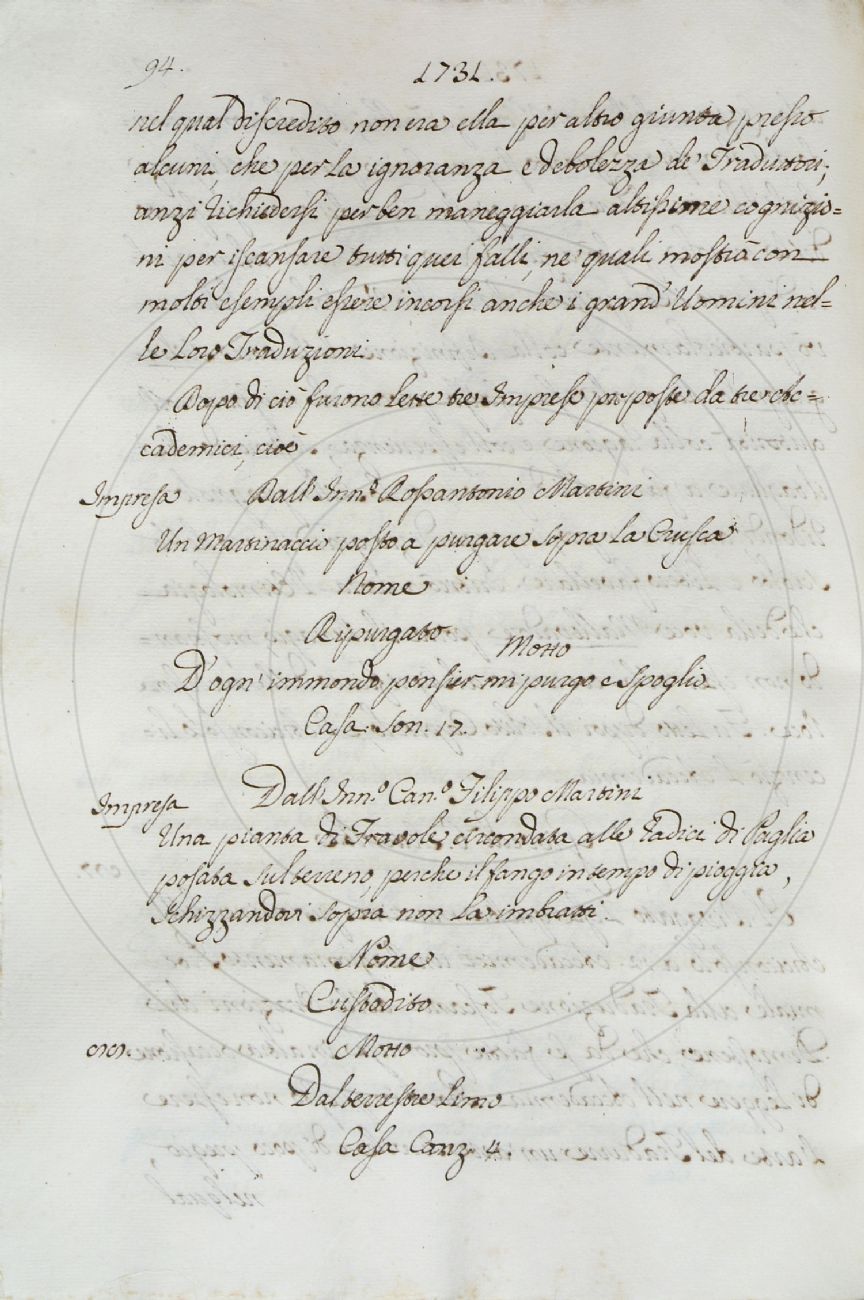 94.
1731.
nel qual discredito non era ella per altro giunta presso
alcuni, che per la ignoranza e debolezza de' Traduttori;
anzi richiedersi per ben maneggiarla altissime cognizio=
ni per iscansare tutti quei falli, ne' quali mostrò con
molti esempli essere incorsi anche i grand' Uomini nel=
le loro Traduzioni.
Dopo di ciò furono lette tre Imprese proposte da tre Ac=
cademici, cioè
Impresa Dall' Inn.º Rossantonio Martini
Un Martinaccio posto a purgare sopra la Crusca
Nome
Ripurgato
Motto
D'ogn' immondo pensier mi purgo e spoglio.
Casa. Son. 17.
Impresa Dall' Inn.º Can.º Filippo Martini
Una pianta di Fravole circondata alle radici di Paglia
posata sul terreno, perche il fango in tempo di pioggia,
schizzandovi sopra non la imbratti.
Nome
Custodito
Motto
Dal terrestre limo
Casa Canz. 4.